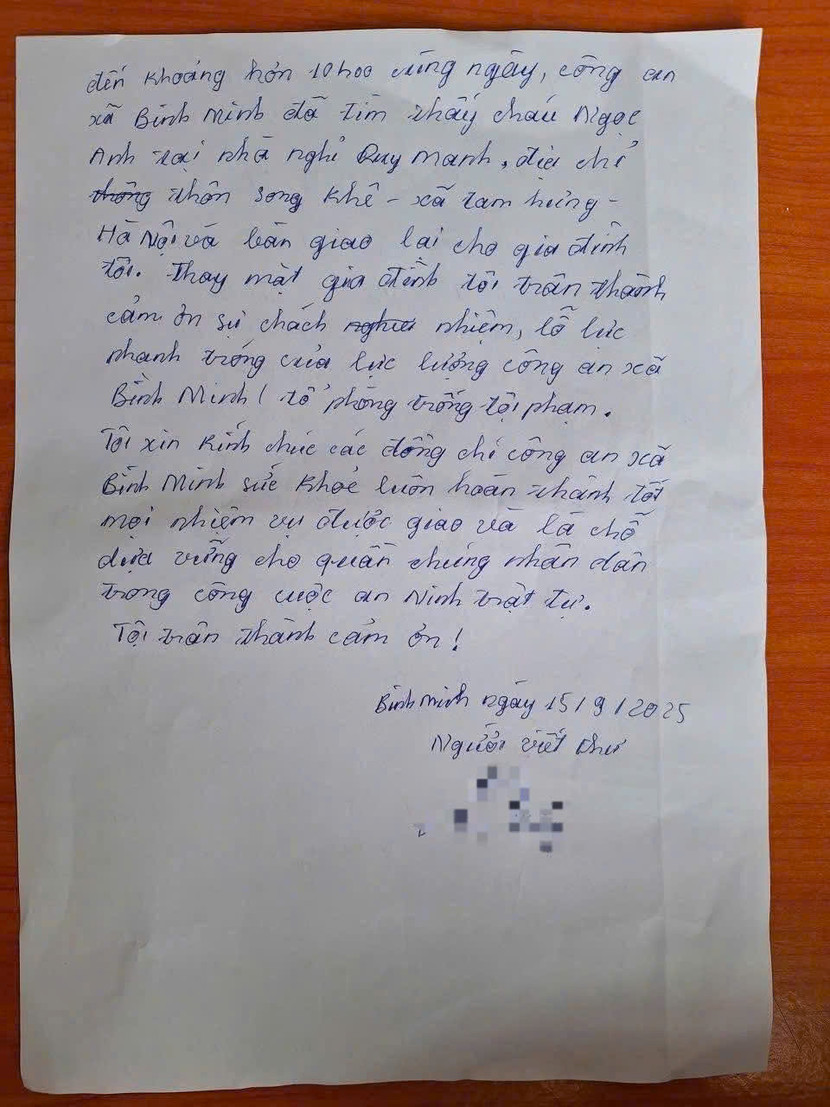 đến khoảng hơn 10h00 cùng ngày, công an
xã Bình Minh đã tìm thấy cháu Ngọc
Anh tại nhà nghỉ Quy Mạnh, địa chỉ
thông thôn song khê - xã tam hưng -
Hà Nội và bàn giao lại cho gia đình
tôi. Thay mặt gia đình tôi trân thành
cảm ơn sự chách nghiê nhiệm, lỗ lực
nhanh tróng của lực lượng công an xã
Bình Minh / tổ phòng trống tội phạm.
Tôi xin kính chúc các đồng chí công an xã
Bình Minh sức khoẻ luôn hoàn thành tốt
mọi nhiệm vụ được giao và là chỗ
dựa vững cho quần chúng nhân dân
trong công cuộc an Ninh trật tự.
Tội trân thành cảm ơn!
Bình Minh ngày 15/9/2025
Người viết thư